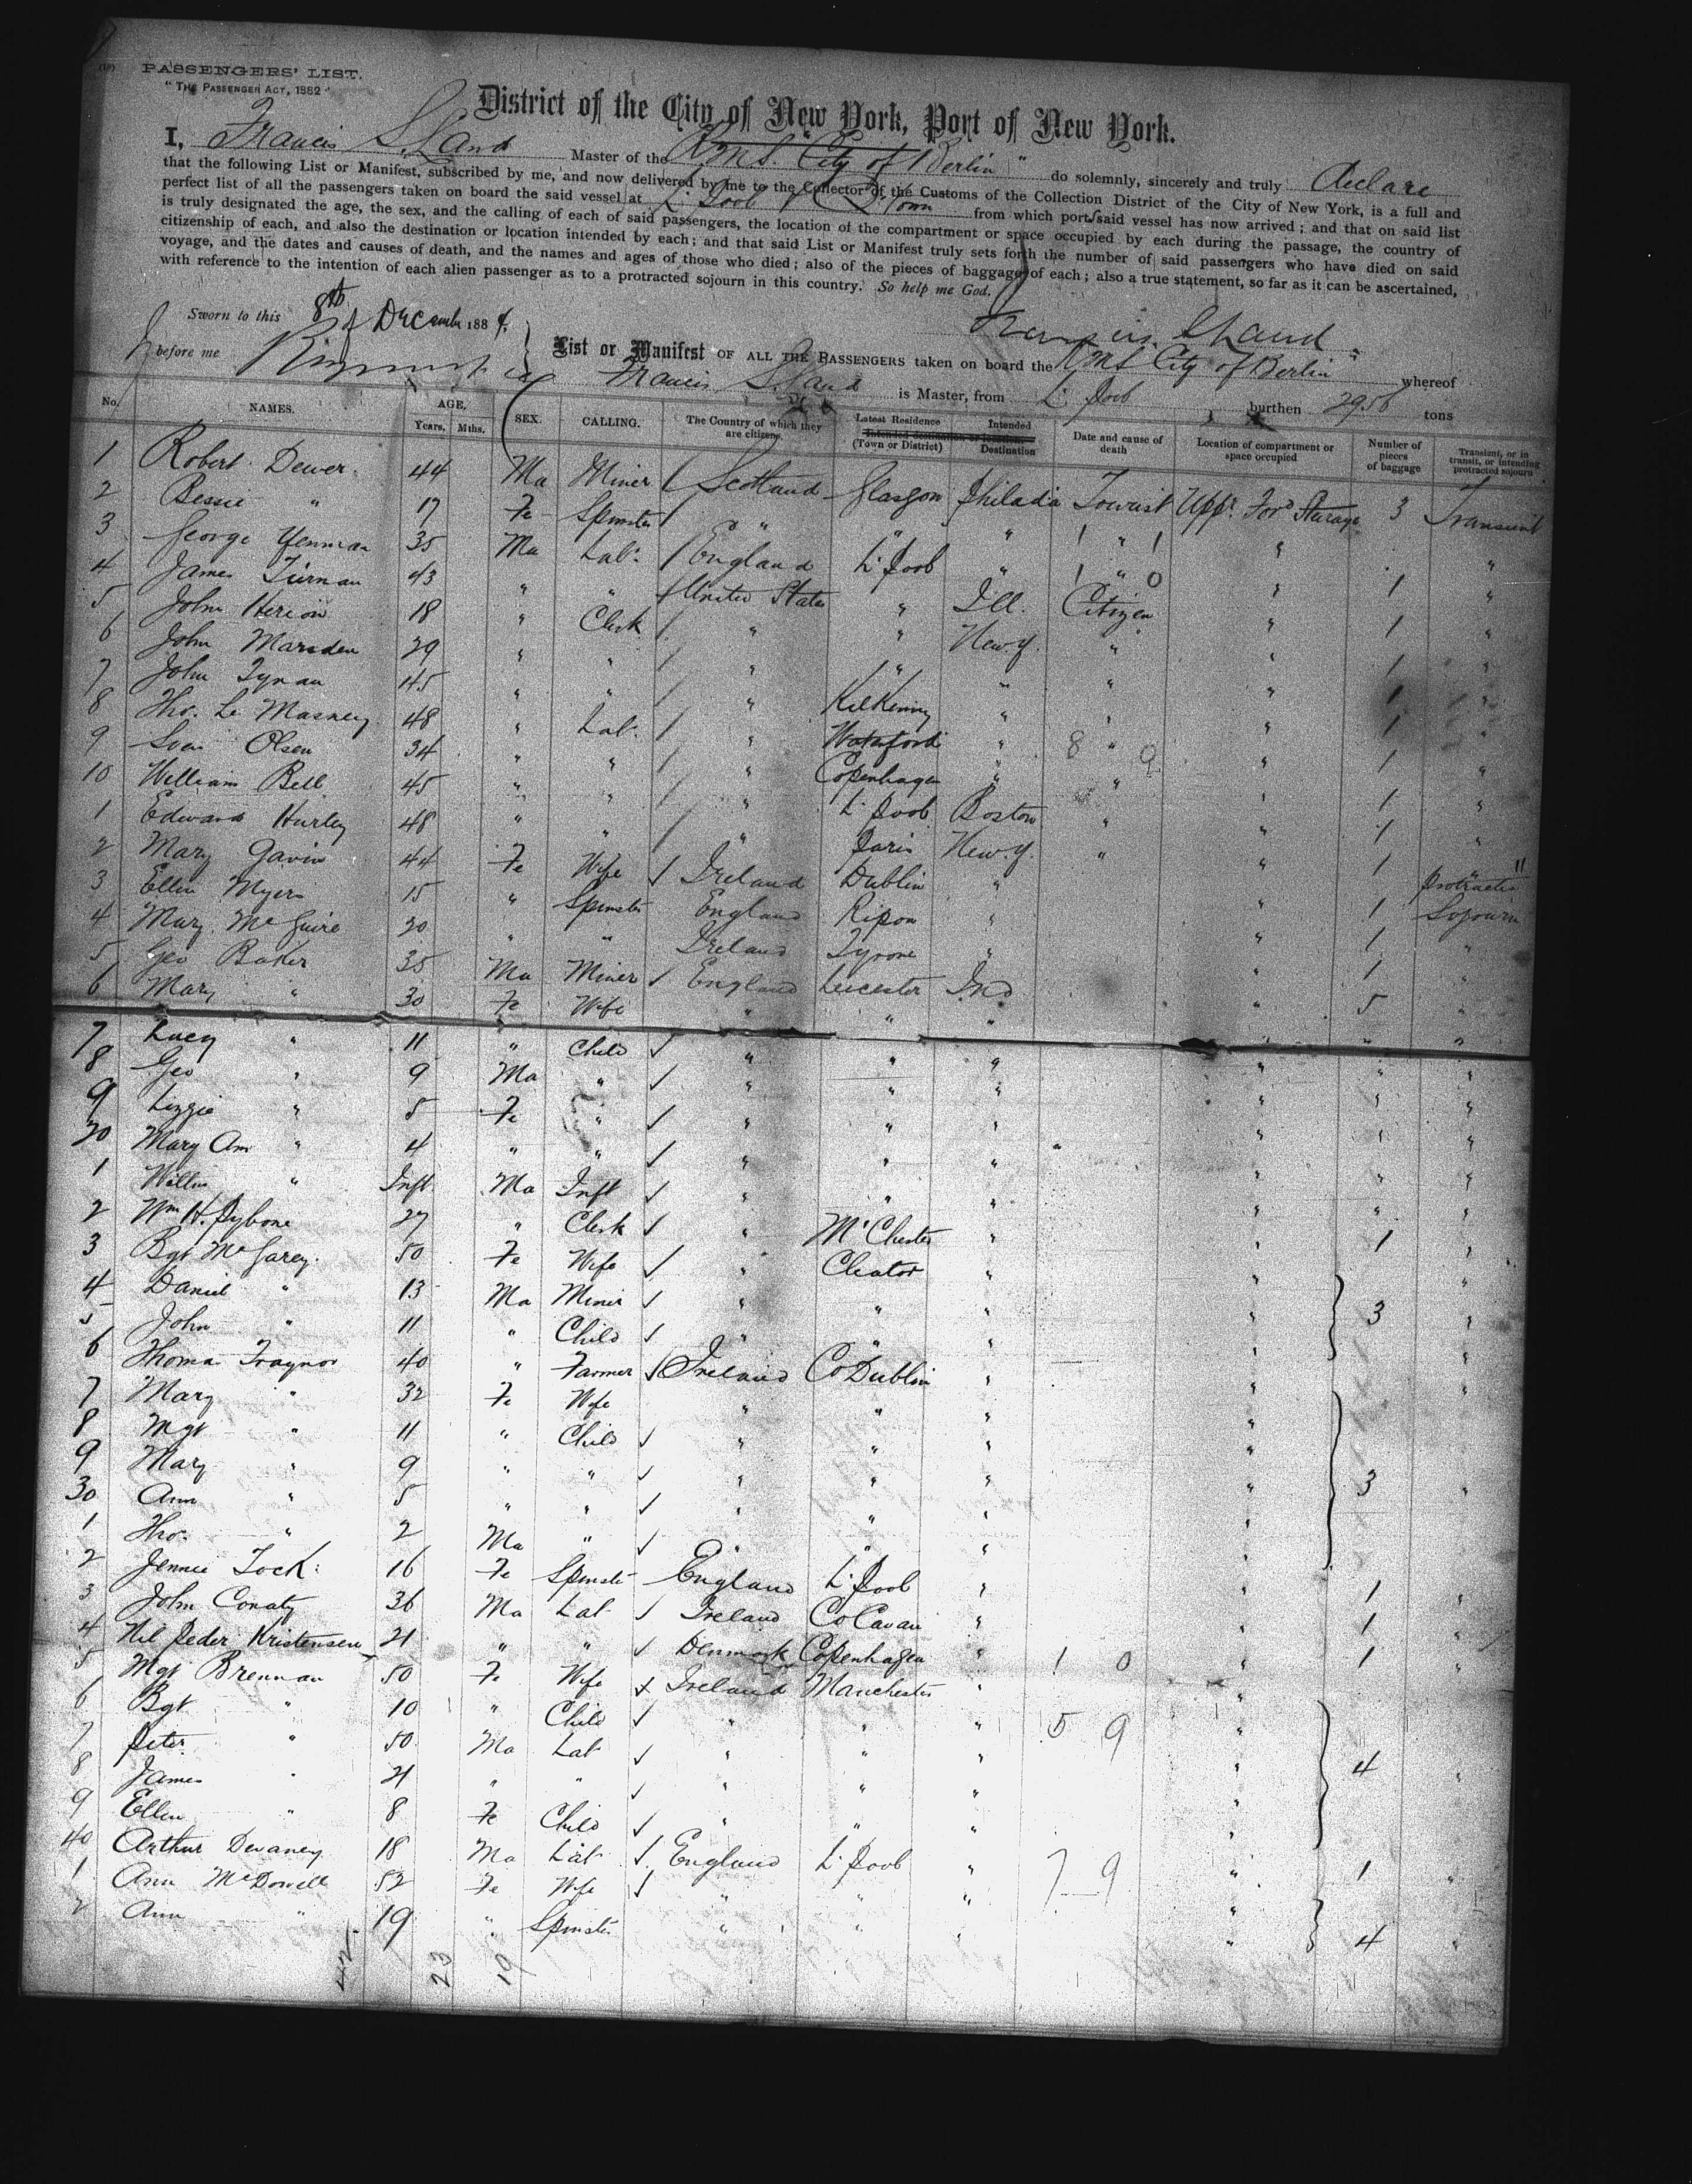 (10) PASSENGERS' LIST.
"THE PASSENGER ACT, 1882"
District of the City of New York, Port of New York.
I, Francis S. Land Master of the R.M.S. "City of Berlin" do solemnly, sincerely and truly declare
that the following List or Manifest, subscribed by me, and now delivered by me to the Collector of the Customs of the Collection District of the City of New York, is a full and
perfect list of all the passengers taken on board the said vessel at L'Pool & Q Town from which port said vessel has now arrived; and that on said list
is truly designated the age, the sex, and the calling of each of said passengers, the location of the compartment or space occupied by each during the passage, the country of
citizenship of each, and also the destination or location intended by each; and that said List or Manifest truly sets forth the number of said passengers who have died on said
voyage, and the dates and causes of death, and the names and ages of those who died; also of the pieces of baggage of each; also a true statement, so far as it can be ascertained,
with reference to the intention of each alien passenger as to a protracted sojourn in this country. So help me God.
Sworn to this 8th of December 1884
Francis S Land
before me
List or Manifest OF ALL THE PASSENGERS taken on board the RMS City of Berlin whereof
Francis S. Land is Master, from L'Pool burthen 2956 tons
No. NAMES. AGE, Years, Mths. SEX. CALLING. The Country of which they are citizens. Latest Residence Intended destination or location (Town or District) Intended Destination Date and cause of death Location of compartment or space occupied Number of pieces of baggage Transient, or in transit, or intending protracted sojourn
1 Robert Dewer 44 Ma Miner Scotland Glasgow Philadia Tourist Uppr Ford Steerage 3 Transient
2 Bessie " 17 Fe Spinster " " " 1 " 1 " "
3 George Yenman 35 Ma Labr England L'Pool " 1 " 0 " 1 "
4 James Tiernan 43 " " United States " Ill. Citizen " 1 "
5 John Herion 18 " Clerk " " New Y. " " 1 "
6 John Marsden 29 " " " " " " " 1 "
7 John Tynan 45 " " " KilKenny " " " 1 "
8 Tho. Le Masney 48 " Labr " Waterford " 8 " 9 " 1 "
9 Sven Olsen 34 " " " Copenhagen " " " 1 "
10 William Bell 45 " " " L'Pool Boston " " 1 "
1 Edward Hurley 48 " " " Paris New Y. " " 1 "
2 Mary Gavin 44 Fe Wife Ireland Dublin " " 1 Protracted
3 Ellen Myers 15 " Spinster England Ripon " " 1 Sojourn
4 Mary McGuire 20 " " Ireland Tyrone " " 1 "
5 Geo Baker 35 Ma Miner England Leicester Ind " 5 "
6 Mary " 30 Fe Wife " " " " " "
7 Lucy " 11 " Child " " " " " "
8 Geo " 9 Ma " " " " " " "
9 Lizzie " 5 Fe " " " " " " "
20 Mary Ann " 4 " " " " " " " "
1 Willm " Inft. Ma Inft " " " " " "
2 Wm H. Pybone 27 " Clerk " M'Chester " " 1 "
3 Bgt McGarey 50 Fe Wife " Cleator " " "
4 Daniel " 13 Ma Miner " " " " 3 "
5 John " 11 " Child " " " " "
6 Thomas Traynor 40 " Farmer Ireland Co Dublin " " "
7 Mary " 32 Fe Wife " " " "
8 Mgt " 11 " Child " " " "
9 Mary " 9 " " " " " " 3 "
30 Ann " 5 " " " " " "
1 Tho. " 2 Ma " " " " "
2 Jennie Tock 16 Fe Spinster England L'Pool " " 1 "
3 John Conaty 36 Ma Lab Ireland Co Cavan " " 1 "
4 Nil Peder Kristensen 21 " " Denmark Copenhagen " 1 0 " 1 "
5 Mgt Brennan 50 Fe Wife Ireland Manchester " "
6 Bgt " 10 " Child " " " 5 9 "
7 Peter " 50 Ma Lab " " " " 4 "
8 James " 21 " " " " " "
9 Ellen " 8 Fe Child " " " "
40 Arthur Devaney 18 Ma Lab England L'Pool " 7 9 " 1 "
1 Ann McDowell 52 Fe Wife " " " "
2 Ann " 19 " Spinster " " " " 4 "
42 23 19